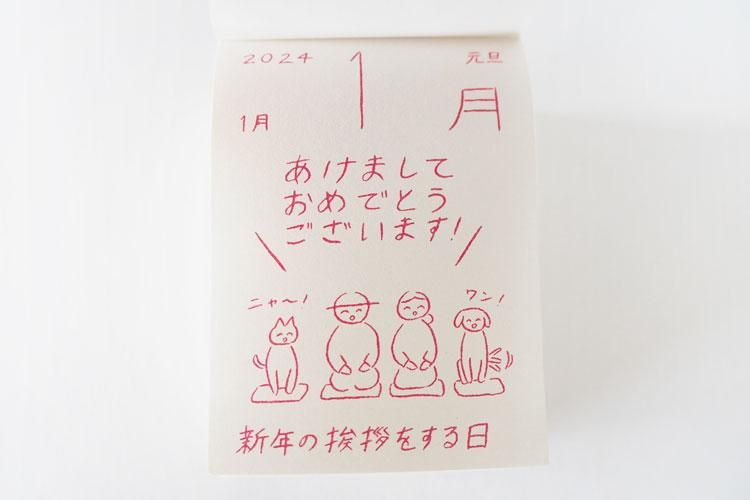 2024
1
元旦
1月
月
あけまして
おめでとう
ございます!
ニャ〜!
ワン!
新年の挨拶をする日